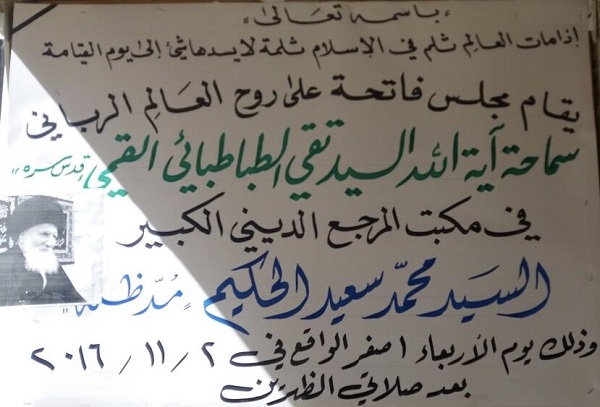 «باسمه تعالى»
إذا مات العالم ثلم في الإسلام ثلمة لا يسدها شيء إلى يوم القيامة
يقام مجلس فاتحة على روح العالم الرباني
سماحة آية الله السيد تقي الطباطبائي القمي "قدس سره"
في مكتب المرجع الديني الكبير
السيد محمد سعيد الحكيم "مد ظله"
وذلك يوم الأربعاء ١ صفر الواقع في ٢ / ١١ / ٢٠١٦
بعد صلاتي الظهرين